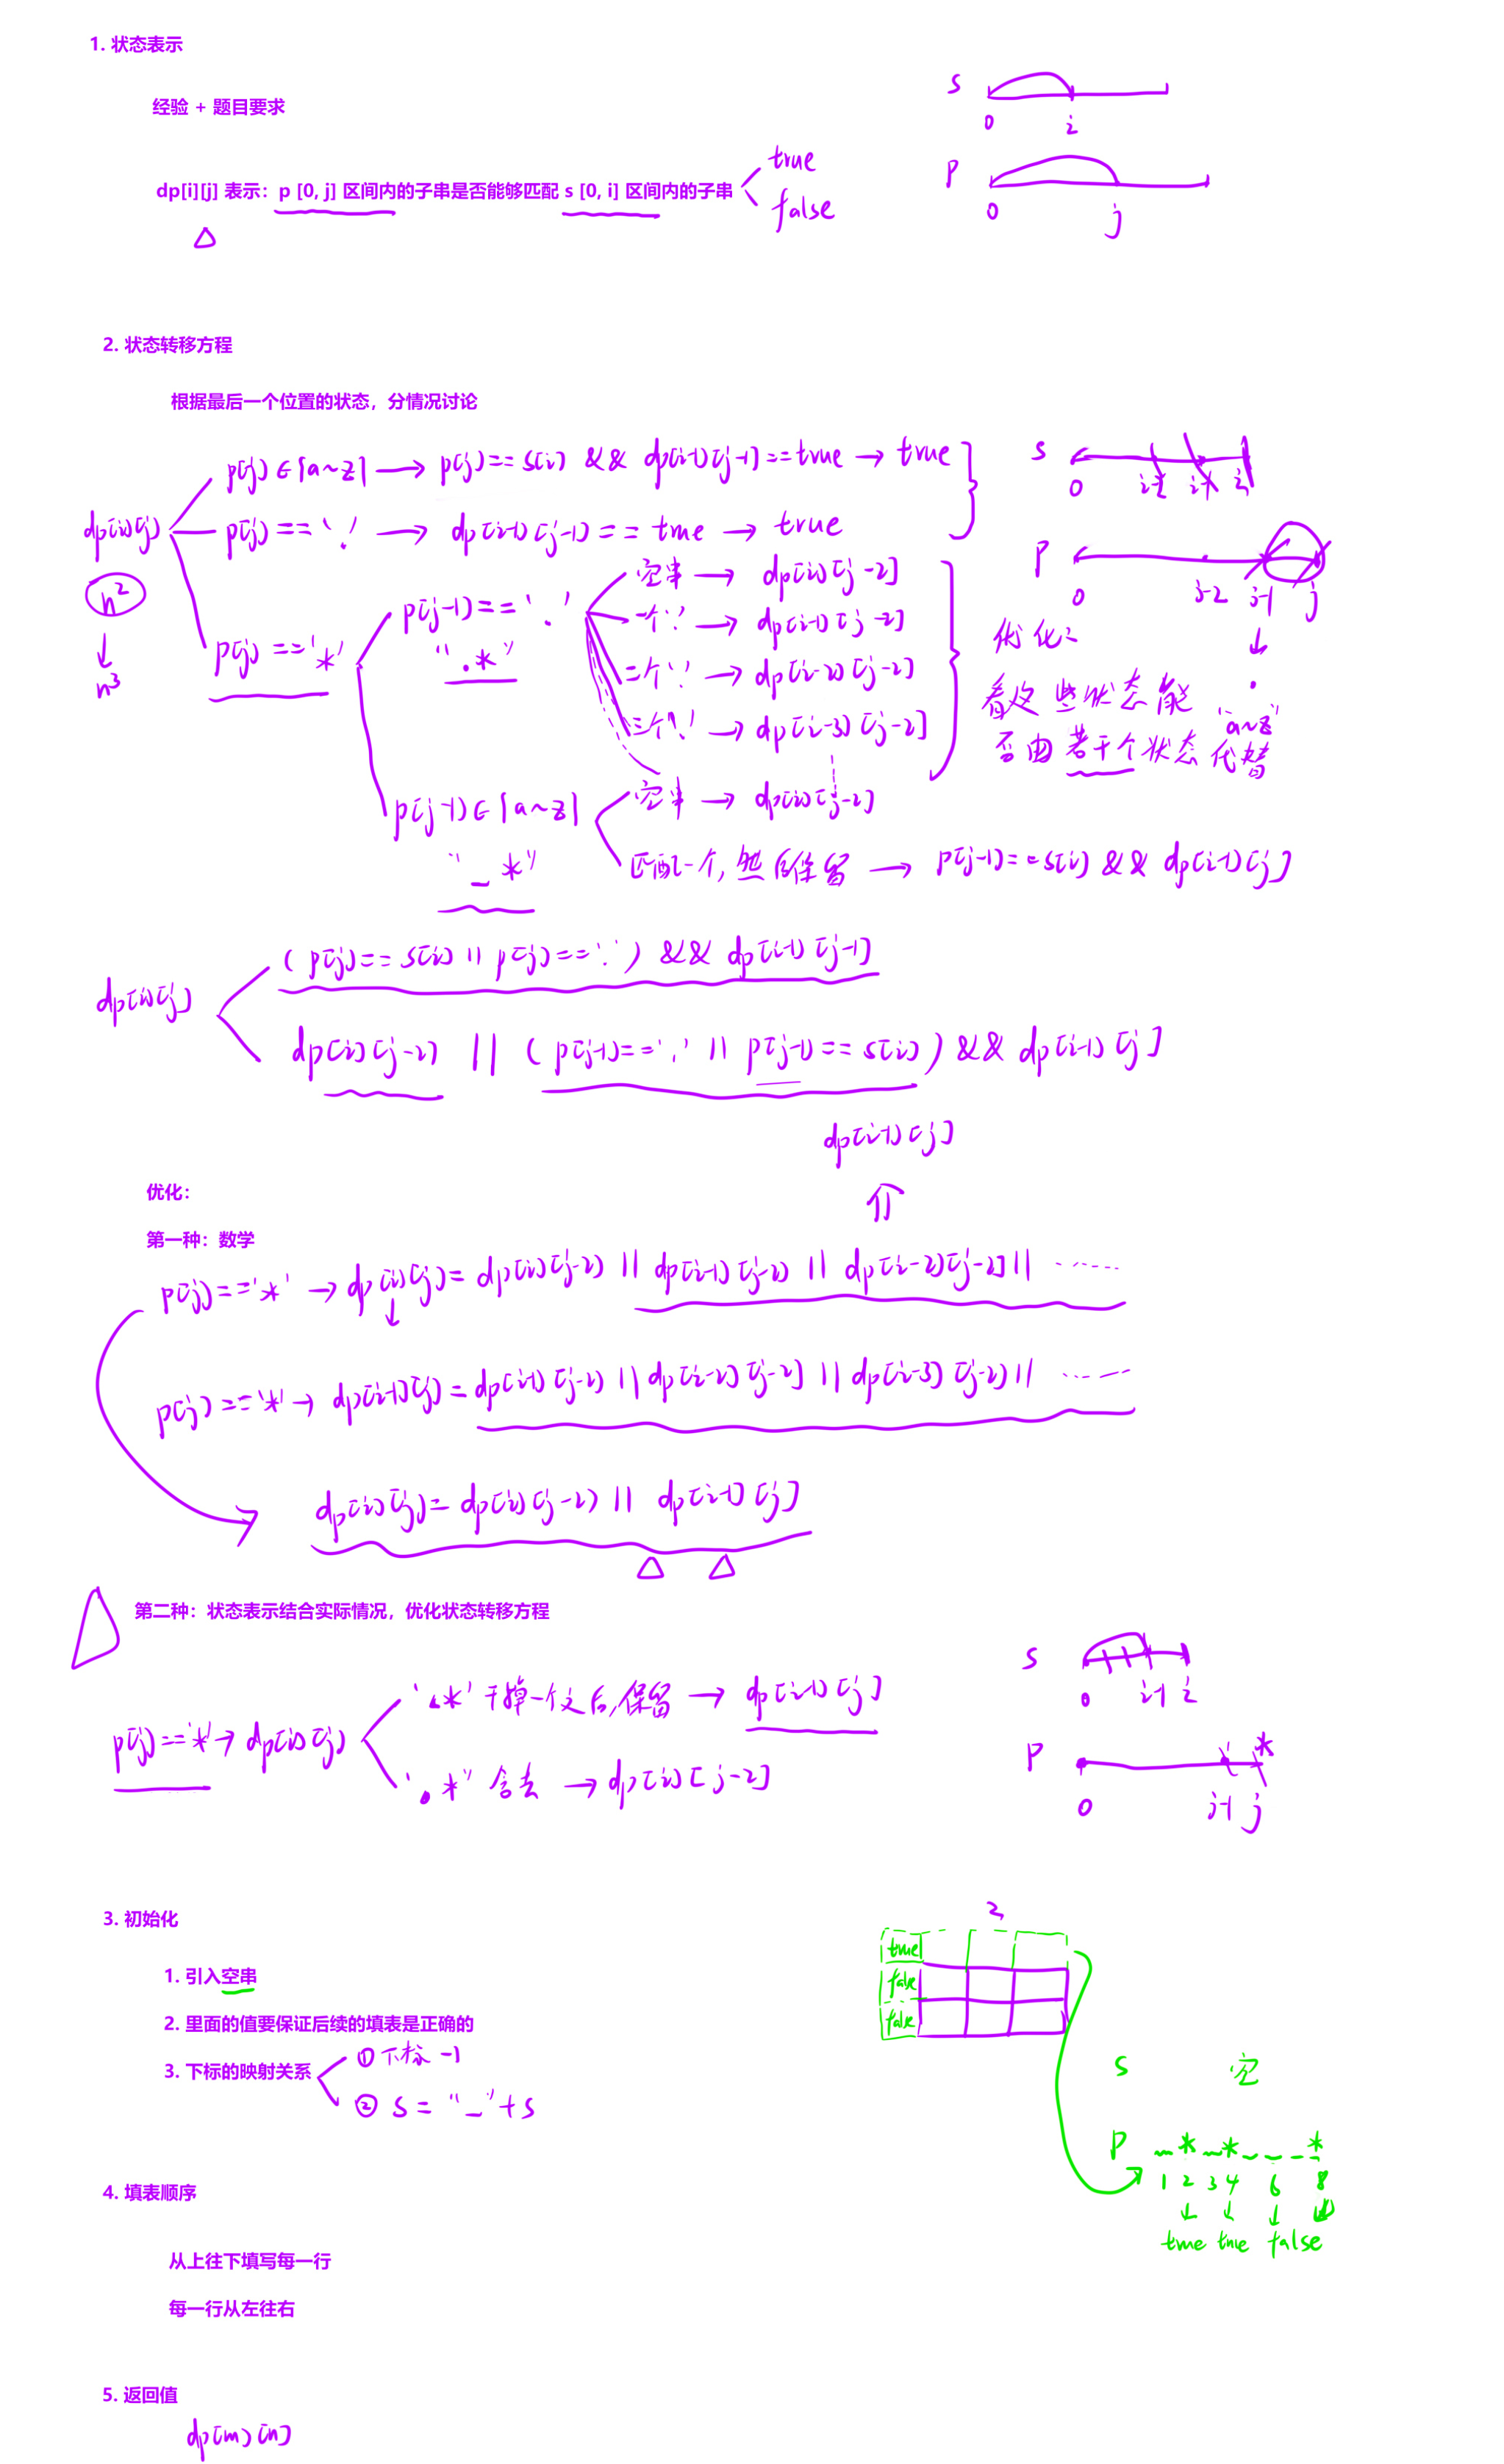 1. 状态表示
经验 + 题目要求
s
0 i
dp[i][j] 表示：p [0, j] 区间内的子串是否能够匹配 s [0, i] 区间内的子串
true
false
p
0 j
2. 状态转移方程
根据最后一个位置的状态，分情况讨论
dp[i][j]
n²
n³
p[j] ∈ {a~z} → p[j] == s[i] && dp[i-1][j-1] == true → true
p[j] == '.' → dp[i-1][j-1] == true → true
p[j] == '*'
p[j-1] == '.'
".*"
空串 → dp[i][j-2]
一个'.' → dp[i-1][j-2]
二个'.' → dp[i-2][j-2]
三个'.' → dp[i-3][j-2]
s
0 i-2 i-1 i
p
0 j-2 j-1 j
优化:
看这些状态能
否由若干个状态代替
.
'a~z'
p[j-1] ∈ {a~z}
"_*"
空串 → dp[i][j-2]
匹配一个, 然后保留 → p[j-1] == s[i] && dp[i-1][j]
dp[i][j]
( p[j] == s[i] || p[j] == '.' ) && dp[i-1][j-1]
dp[i][j-2] || ( p[j-1] == '.' || p[j-1] == s[i] ) && dp[i-1][j]
dp[i-1][j]
优化：
第一种：数学
p[j] == '*' → dp[i][j] = dp[i][j-2] || dp[i-1][j-2] || dp[i-2][j-2] || ......
p[j] == '*' → dp[i-1][j] = dp[i-1][j-2] || dp[i-2][j-2] || dp[i-3][j-2] || ......
dp[i][j] = dp[i][j-2] || dp[i-1][j]
第二种：状态表示结合实际情况，优化状态转移方程
p[j] == '*' → dp[i][j]
'.*' 干掉一个之后, 保留 → dp[i-1][j]
'.*' 舍去 → dp[i][j-2]
s
0 i-1 i
p *
0 j-1 j
3. 初始化
1. 引入空串
2. 里面的值要保证后续的填表是正确的
3. 下标的映射关系
① 下标 -1
② s = "_" + s
2
true
false
false
s 空
p _ * _ * _ _ _ *
1 2 3 4 6 8
true true false
4. 填表顺序
从上往下填写每一行
每一行从左往右
5. 返回值
dp[m][n]